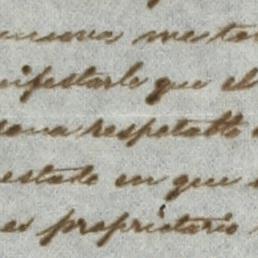 nueva mesta
nifestarle que el
sona respetable
estado en que
es proprietario